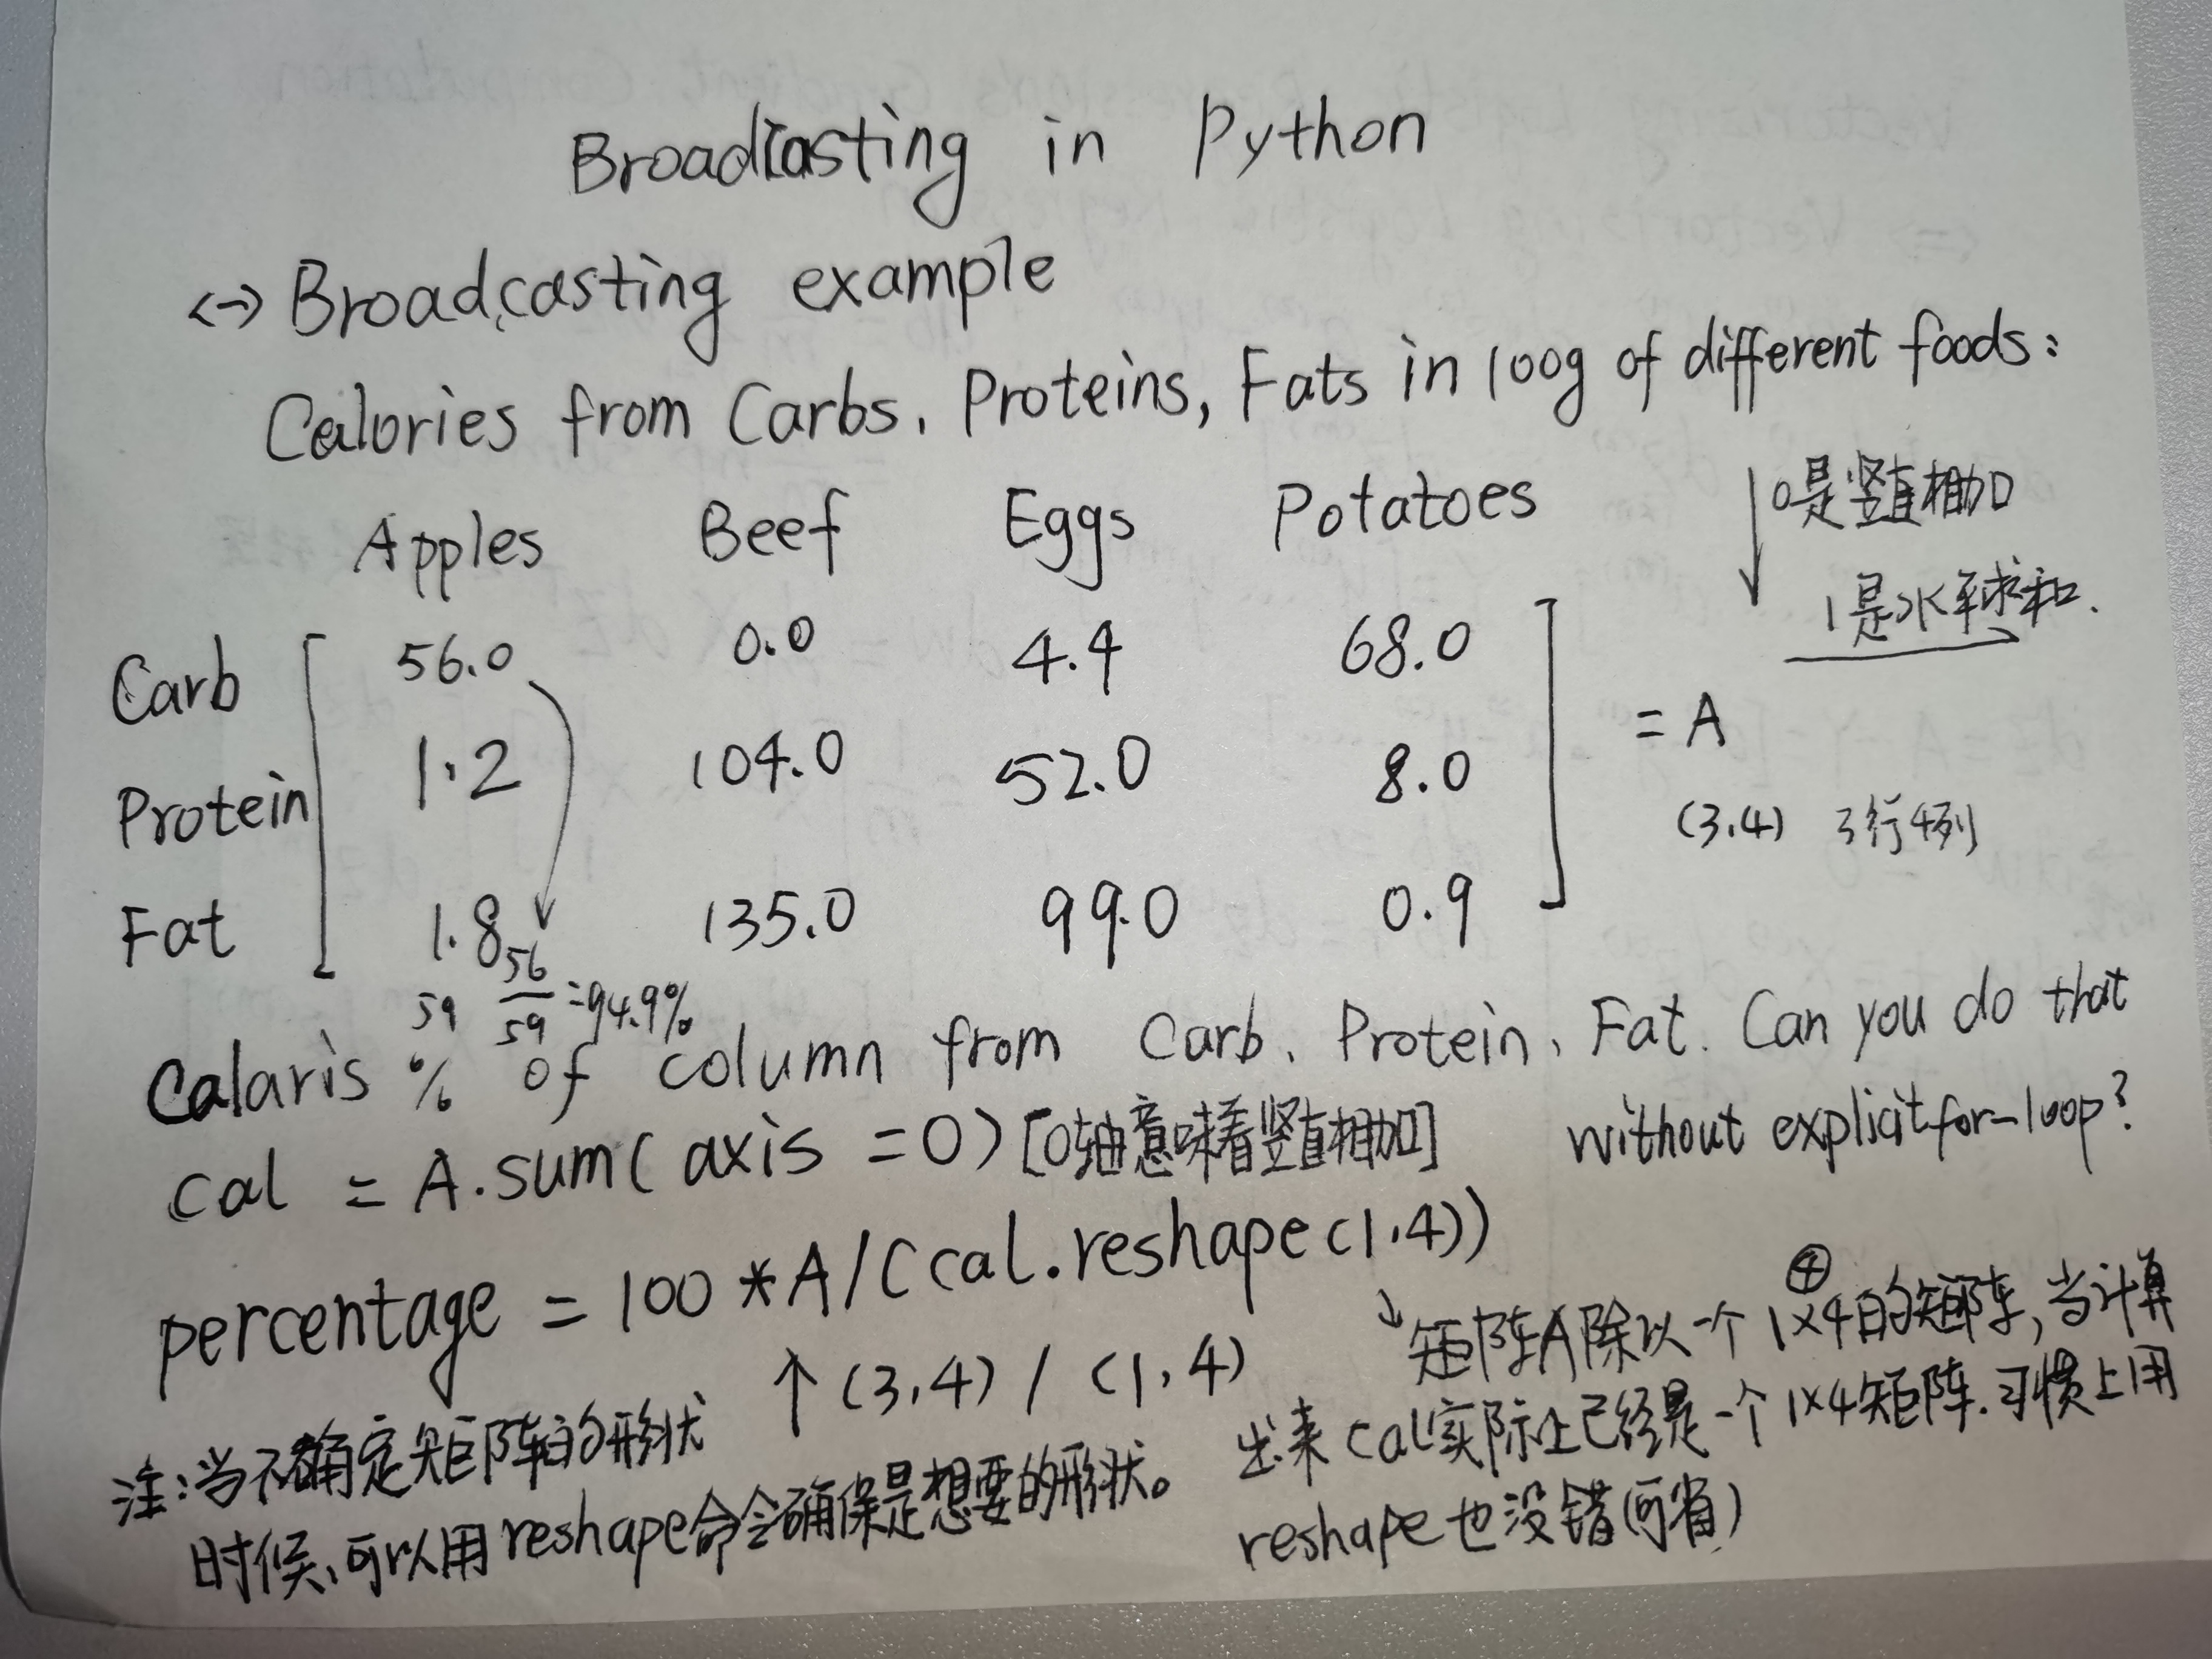 Broadcasting in Python
<-> Broadcasting example
Calories from Carbs, Proteins, Fats in 100g of different foods:
Apples Beef Eggs Potatoes
0是竖直相加
1是水平求和.
Carb 56.0 0.0 4.4 68.0
Protein 1.2 104.0 52.0 8.0
= A
(3,4) 3行4列
Fat 1.8 135.0 99.0 0.9
59 56/59 =94.9%
Calaris % of column from Carb, Protein, Fat. Can you do that
without explicit for-loop?
cal = A.sum( axis =0) [0轴意味着竖直相加]
percentage = 100 *A/(cal.reshape(1,4))
↑ (3,4) / (1,4)
↓ 矩阵A除以一个1×4的矩阵,当计算
出来cal实际上已经是一个1×4矩阵.习惯上用
reshape也没错(可省)
注:当不确定矩阵的形状
时候,可以用reshape命令确保是想要的形状。